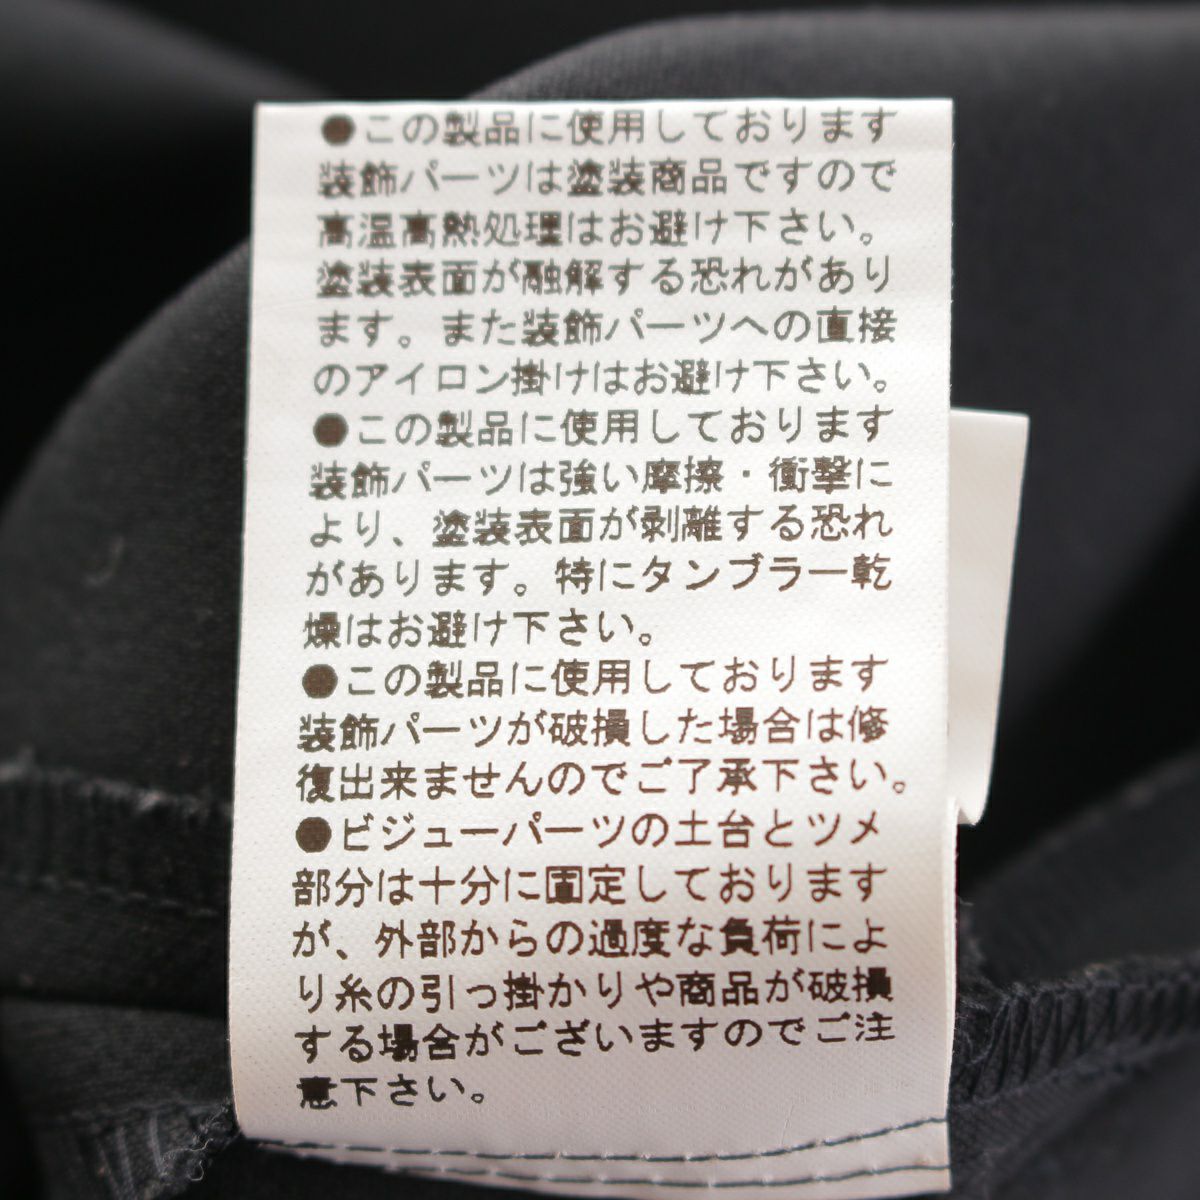 ●この製品に使用しております
装飾パーツは塗装商品ですので
高温高熱処理はお避け下さい。
塗装表面が融解する恐れがあり
ます。また装飾パーツへの直接
のアイロン掛けはお避け下さい。
●この製品に使用しております
装飾パーツは強い摩擦・衝撃に
より、塗装表面が剥離する恐れ
があります。特にタンブラー乾
燥はお避け下さい。
●この製品に使用しております
装飾パーツが破損した場合は修
復出来ませんのでご了承下さい。
●ビジューパーツの土台とツメ
部分は十分に固定しております
が、外部からの過度な負荷によ
り糸の引っ掛かりや商品が破損
する場合がございますのでご注
意下さい。